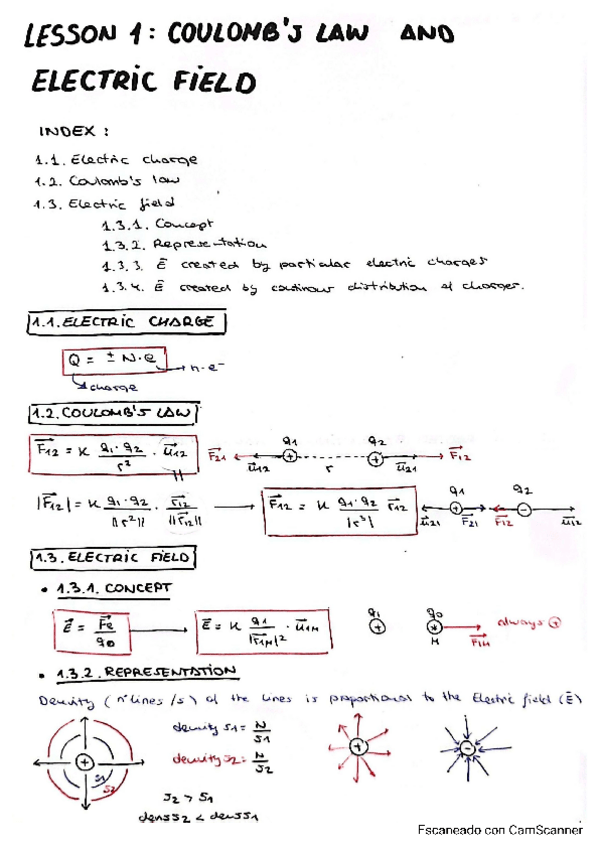 LESSON 1: COULOMB'S LAW AND
ELECTRIC FIELD
INDEX:
1.1. Electric charge
1.2. Coulomb's law
1.3. Electric field
1.3.1. Concept
1.3.2. Representation
1.3.3. E⃗ created by particular electric charges
1.3.4. E⃗ created by continous distribution of charges.
1.1. ELECTRIC CHARGE
Q = ± N·e → n·e⁻
charge
1.2. COULOMB'S LAW
F⃗12 = K q1·q2 / r² · u⃗12
F⃗21 u⃗12 q1 + r q2 + u⃗21 F⃗12
|F⃗12| = K q1·q2 / ||r²|| · r⃗12 / ||r⃗12|| → F⃗12 = K q1·q2 / |r³| r⃗12
q1 + q2 - u⃗21 F⃗21 F⃗12 u⃗12
1.3. ELECTRIC FIELD
• 1.3.1. CONCEPT
E⃗ = F⃗e / q0 → E⃗ = K q1 / |r⃗1M|² · u⃗1M
q1 + q0 + M F⃗1M always +
• 1.3.2. REPRESENTATION
Density (nº lines /s) of the lines is proportional to the Electric field (E⃗)
density S1 = N / S1
density S2 = N / S2
+ S1 S2
+ -
S2 > S1
dens S2 < dens S1
Escaneado con CamScanner